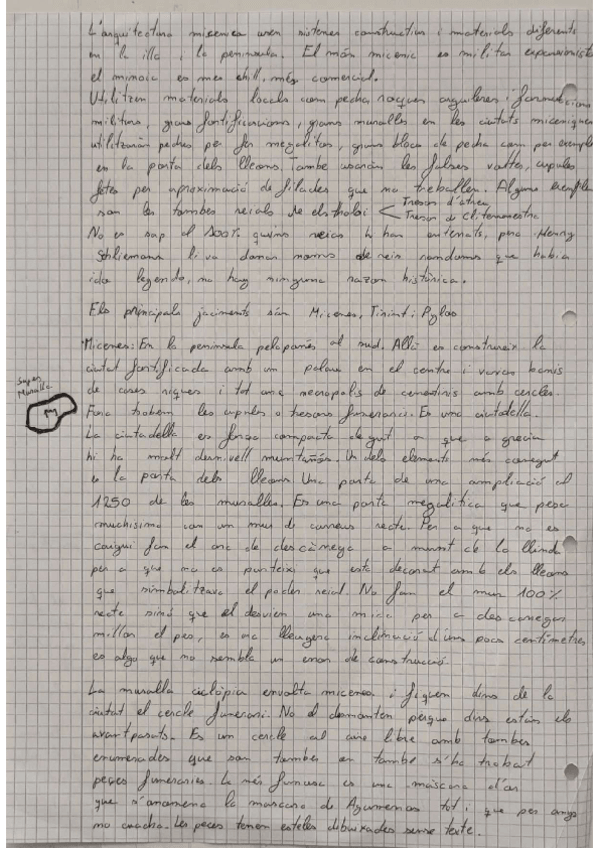 L'arquitectura micenica usen sistemes constructius i materials diferents
en la illa i la peninsula. El món micenic es militar expansionista
el minoic es mes chill, més comercial.
Utilitzen materials locals com pedra roques argileres i formacions
militars, grans fortificacions, grans muralles en les ciutats miceniques
utilitzaràn pedres per fer megalitos, grans blocs de pedra com per exemple
en la porta dels lleons. Tambe usaràn les falses voltes, cupules
fetes per aproximació de filades que no treballen. Alguns exemples
són les tombes reials de els tholoi < Tresor d'atreu
Tresor de Cliternnestra
No es sap al 100% quins reies hi han enterrats, pero Henry
Schliemann li va donar noms de reis randoms que habia
ido legendo, no hay ninguna razon històrica.
Els principals jaciments són Micenes, Tirint i Pylos
Micenes: En la peninsula peloponès al sud. Allà es construeix la
ciutat fortificada amb un palau en el centre i varios barris
de cases riques i tot una necropolis de cementiris amb cercles.
Super
Muralla
Fora trobem les cupules o tresors funeraris. Es una ciutadella.
La ciutadella es força compacta degut a que a grecia
hi ha molt desnivell muntañós. Un dels elements més conegut
es la porta dels lleons. Una porta de una ampliació al
1250 de les muralles. Es una porta megalitica que pesa
muchisimo con un mur de carreus recte. Per a que no es
caigui fan el arc de descàrrega a munt de la llinda
per a que no es parteixi que està decorat amb els lleons
que simbolitzava el poder reial. No fan el mur 100%
recte sinó que el desvien una mica per a descarregar
millor el pes, es una lleugera inclinació d'uns pocs centímetres
es algo que no sembla un error de construcció.
La muralla ciclòpia envolta micenes. i fiquen dins de la
ciutat el cercle funerari. No el desmonten perque dins estàn els
avantpasats. Es un cercle al aire libre amb tombes
enumerades que son tombes en tombe s'ha trobat
peçes funeraries. La més famosa es una màscara d'or
que s'anomena la mascara de Agamemnon tot i que per anys
no cuadra. Les peces tenen esteles dibuixades sense texte.